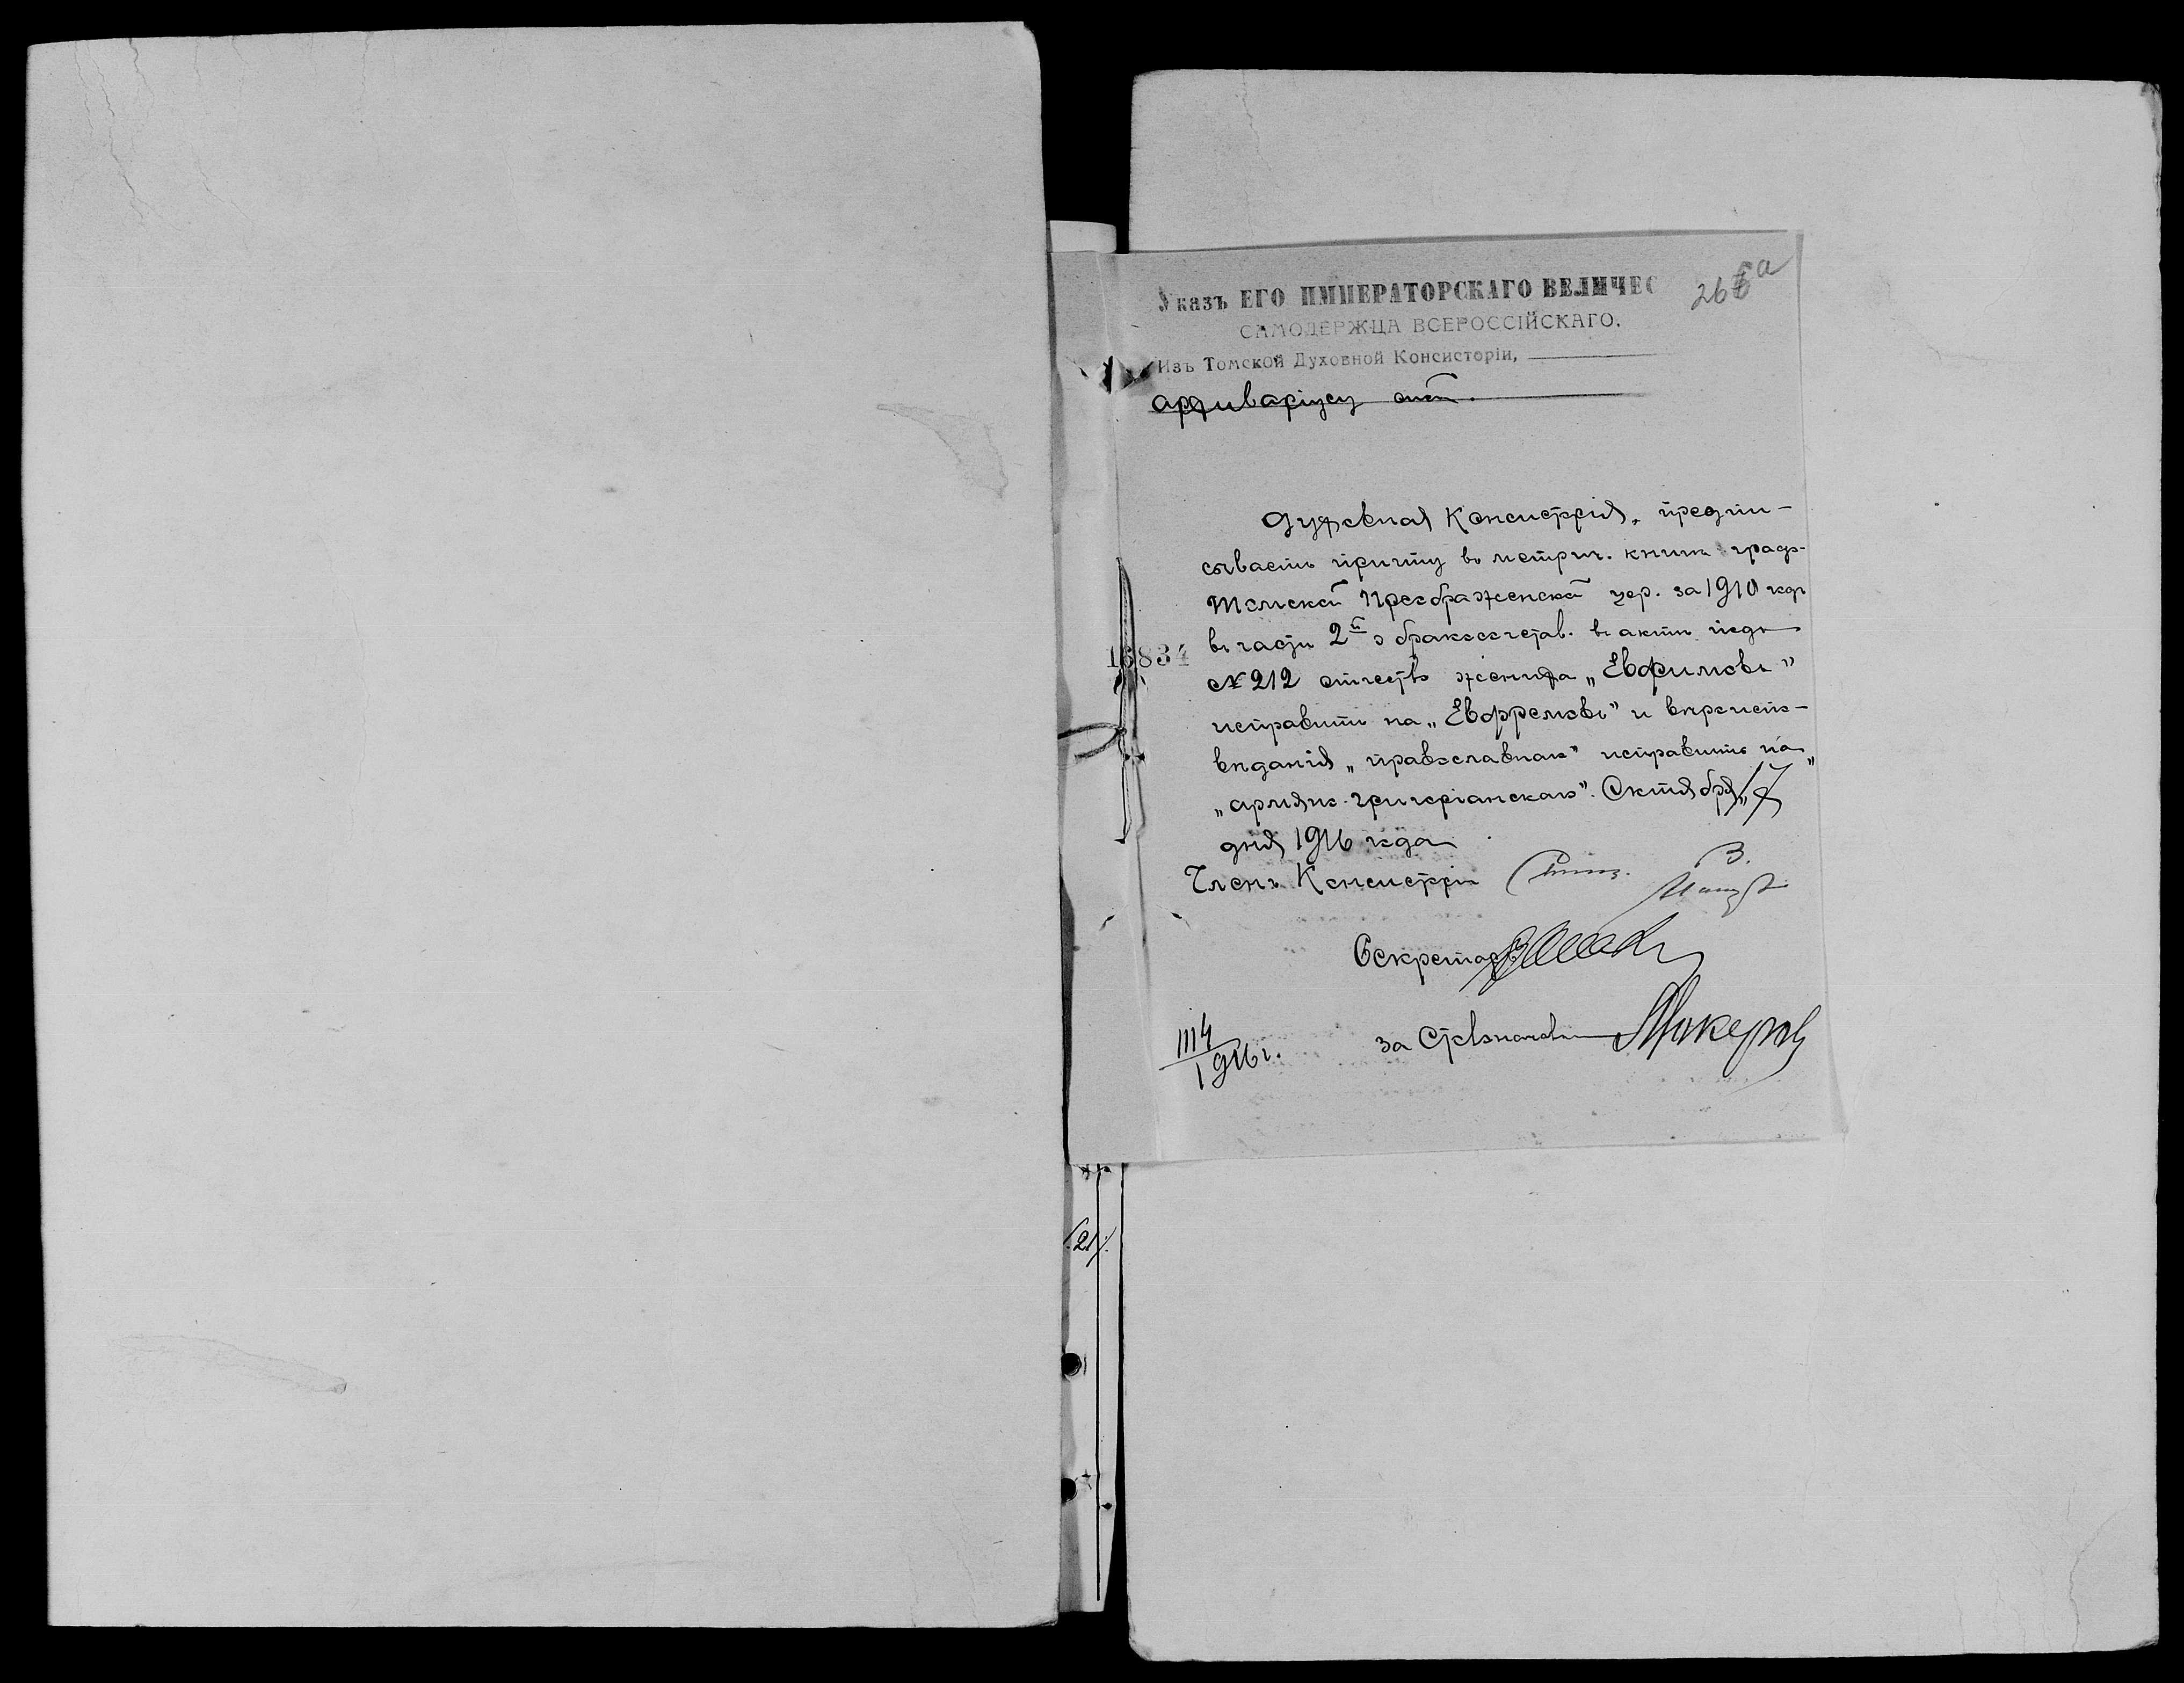 Указъ ЕГО ИМПЕРАТОРСКАГО ВЕЛИЧЕС
САМОДЕРЖЦА ВСЕРОССІЙСКАГО.
Изъ Томской Духовной Консисторіи,
архиваріусу
Духовная Консисторія, предпи-
сываетъ причту въ метрич. книгѣ градо-
Томской Преображенской цер. за 1910 годъ
въ части 2й о бракосочетав. въ актѣ подъ
№ 212 отчество жениха „Евфимовъ"
исправить на „Евфремовъ" и вѣроиспо-
вѣданія „православнаго" исправить на
„армяно-григоріанскаго". Октября „17"
дня 1916 года
16834
Членъ Консисторіи
Секретарь
1114
1916 г.
за Столоначальн
(21).